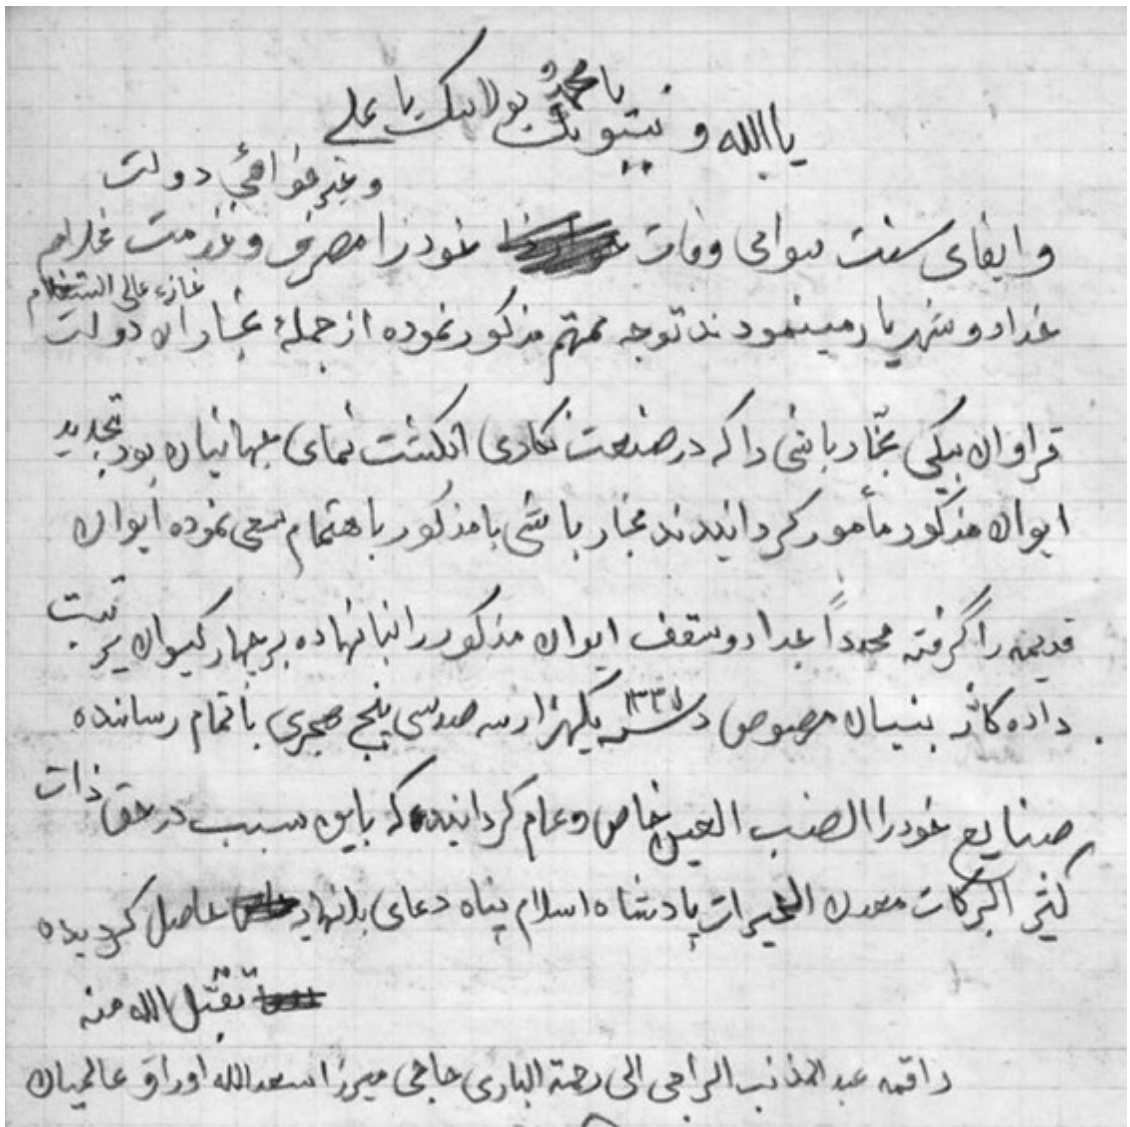 یا محمد
یا الله و نبیوتک بولایتک یا علی
و خیرخواهی دولت
و ایفای سنت وفات خود را مصرف و خذمت غلام
غازء عالی
خداد و شهریار مینمودند توجه مهتم مذکور نموده از جمله نجاران دولت
قراوان بیکی نجار باشی را که در صنعت نکاری انکشت نمای جهانیان بود تجدید
ایوان مذکور مأمور کردانیدند نجار باشی با مذکور باهتمام سعی نموده ایوان
قدیمه را گرفته مجدداً جدار و سقف ایوان مذکور را بنا نهاده بر چهار کیوان ترتیب
داده کانّه بنیان مرصوص در سنه ۱۳۳۵ یکهزار سه صد سی پنج هجری باتمام رسانده
صنایع خود را نصب العین خاص و عام کردانیده که باین سبب در حق ذات
کثیر البرکات معدن الخیرات پادشاه اسلام پناه دعای حاصل کردیده
تقبل الله منه
راقمه عبد المذنب الراجی الی رحمة الباری حاجی میرزا سعدالله اوراق عالمیان